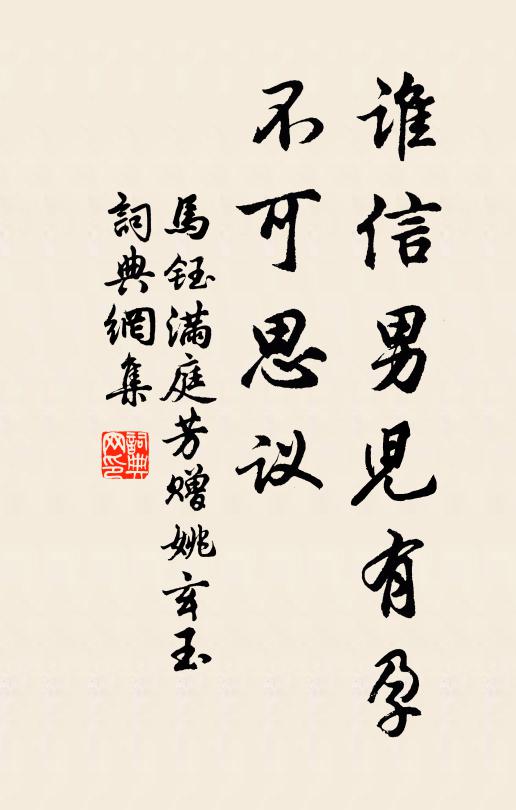 谁信男儿有孕
不可思议
馬鈺满庭芳赠姚玄玉
詞典網集
詞典网印